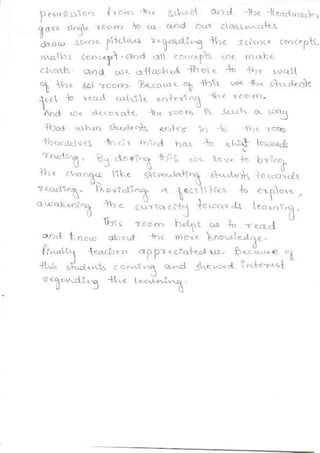 permission from the school and the Headmaster
gave single room to us. and our classmates
draw some pitclues regarding the science concepts
maths concept. and all concepts we make
charts. and we attached those to the wall
of the room. Because of this we the students
feel to read while entering the room.
And we decorate the room is such a way
that when students enter in to the room
themselves their mind has to shift towards
reading. By doring this we love to bring
the changes like stimulating students towards
reading. Providing a fecilities to explore,
awakening the curiacity towards learning.
This room helps us to read
and know about the more knowledge.
finally teachers appreciated us. Because of
this students coming and showed interest
regarding the learning.